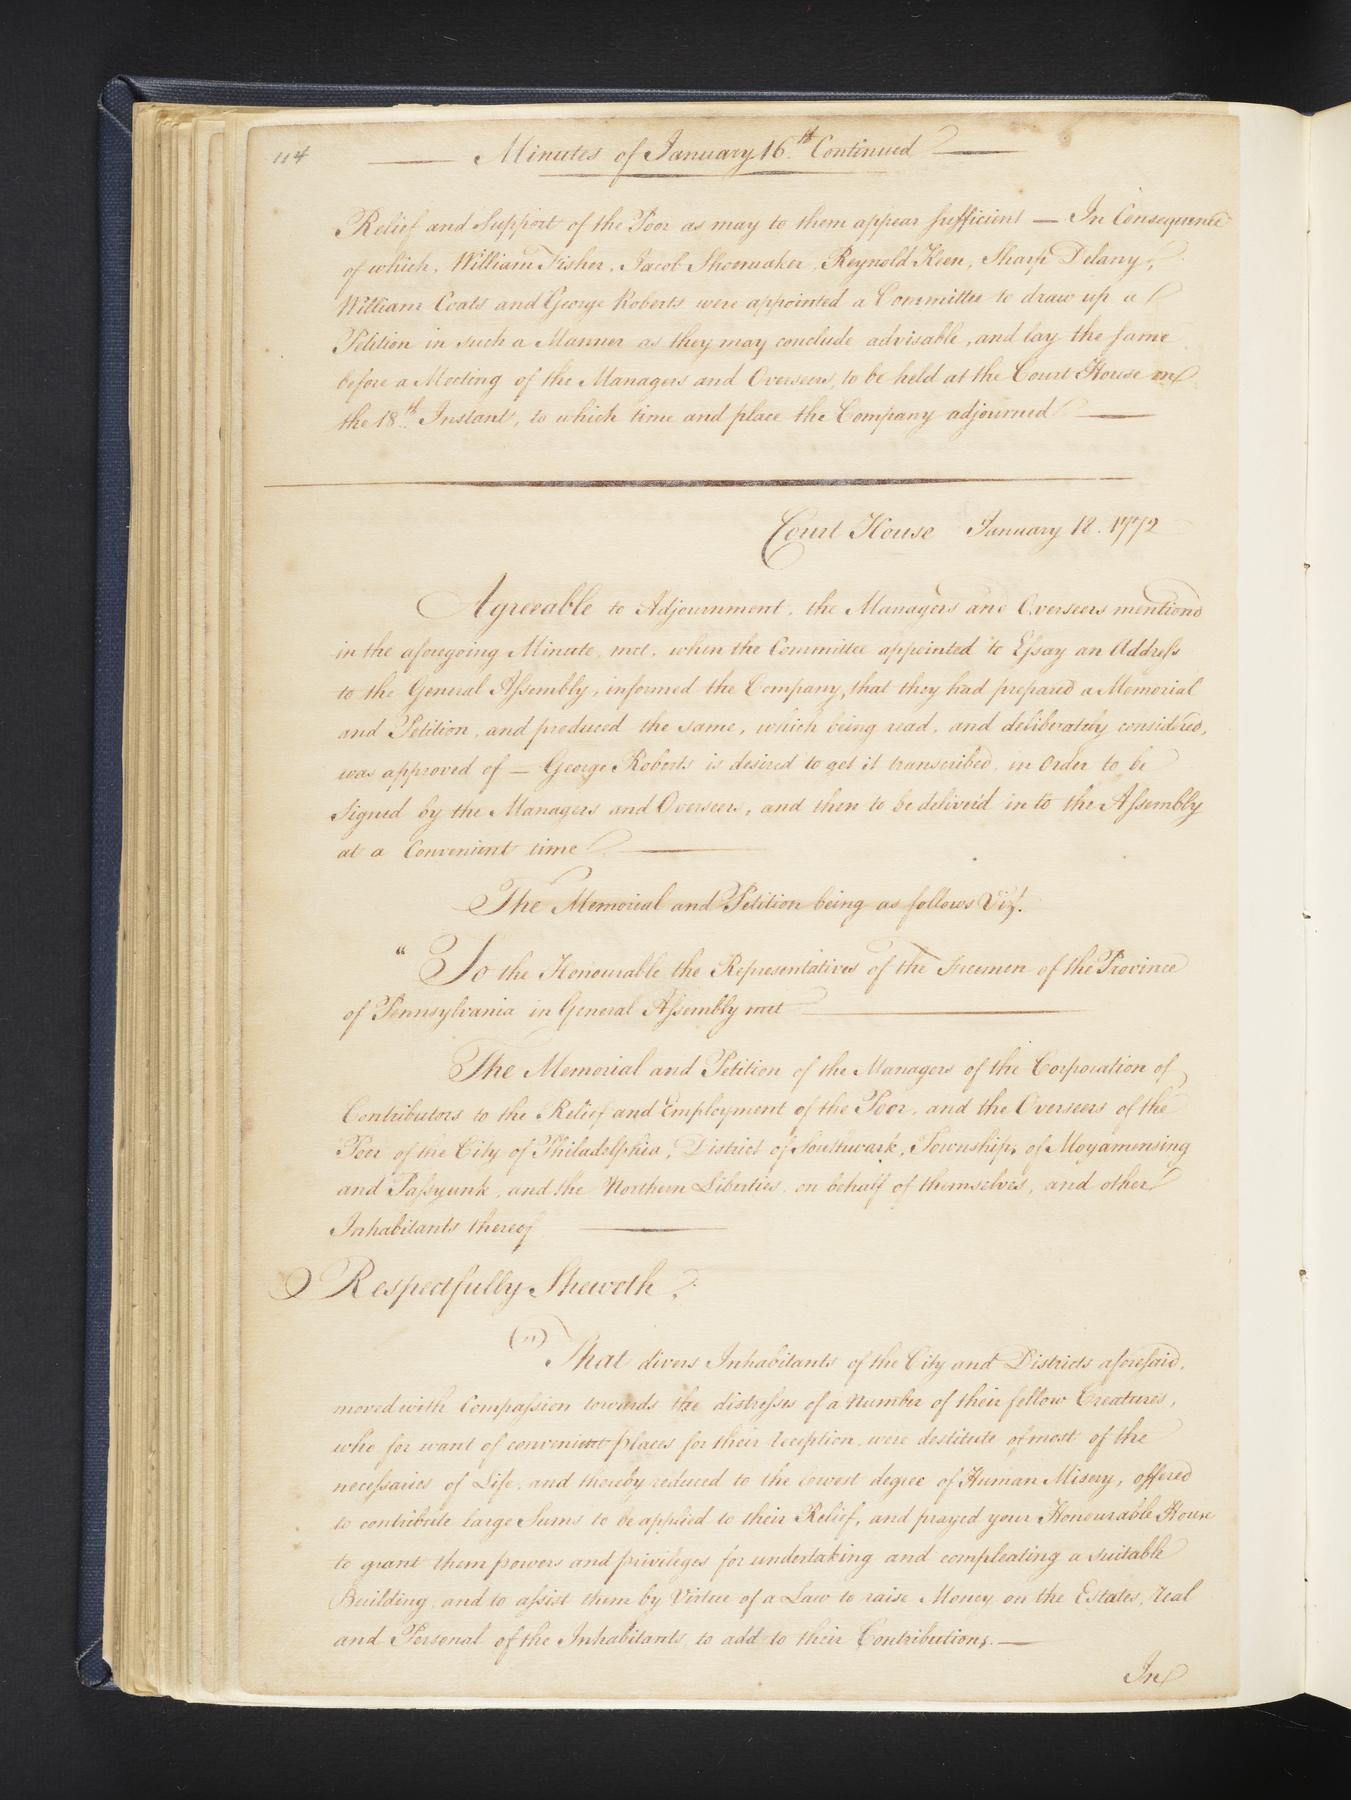 114
Minutes of January 16.th Continued
Relief and Support of the Poor as may to them appear sufficient — In Consequence
of which, William Fisher, Jacob Shoemaker, Reynold Keen, Sharp Delany,
William Coats and George Roberts were appointed a Committee to draw up a
Petition in such a Manner as they may conclude advisable, and lay the same
before a Meeting of the Managers and Overseers, to be held at the Court House on
the 18.th Instant, to which time and place the Company adjourned —
Court House January 18. 1772
Agreeable to Adjournment, the Managers and Overseers mentiond
in the aforegoing Minute, met, when the Committee appointed to Essay an Address
to the General Assembly, informed the Company, that they had prepared a Memorial
and Petition, and produced the same, which being read, and deliberately considered,
was approved of — George Roberts is desired to get it transcribed, in Order to be
Signed by the Managers and Overseers, and then to be deliver'd in to the Assembly
at a Convenient time —
The Memorial and Petition being as follows Vizt.
“ To the Honourable the Representatives of the Freemen of the Province
of Pennsylvania in General Assembly met —
The Memorial and Petition of the Managers of the Corporation of
Contributors to the Relief and Employment of the Poor, and the Overseers of the
Poor of the City of Philadelphia, District of Southwark, Townships of Moyamensing
and Passyunk, and the Northern Liberties, on behalf of themselves, and other
Inhabitants thereof —
Respectfully Sheweth,
(") That divers Inhabitants of the City and Districts aforesaid,
moved with Compassion towards the distresses of a Number of their fellow Creatures,
who for want of convenient places for their reception, were destitute of most of the
necessaries of Life, and thereby reduced to the lowest degree of Human Misery, offered
to contribute large Sums to be applied to their Relief, and prayed your Honourable House
to grant them powers and privileges for undertaking and compleating a suitable
Building, and to assist them by Virtue of a Law to raise Money on the Estates, real
and Personal of the Inhabitants, to add to their Contributions. —
In